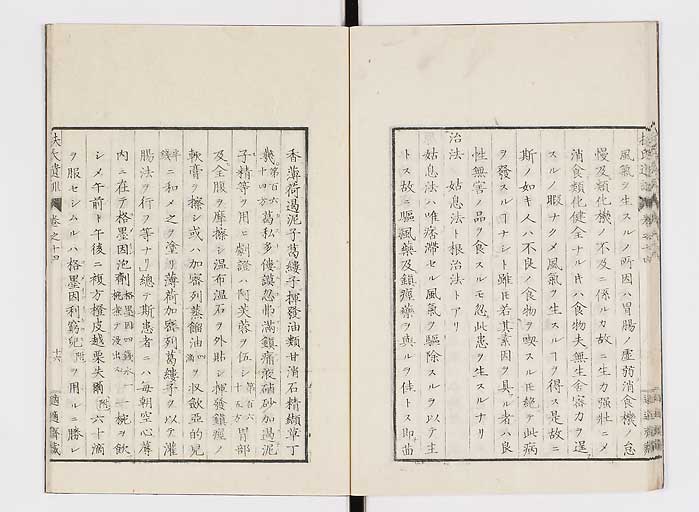 風氣ヲ生スルノ所因ハ胃腸ノ虚弱消食機ノ怠
慢及類化機ノ不及ニ係ルカ故ニ生力强壯ニメ
消食類化健全ナル片ハ食物夫無生舍密力ヲ逞
スルノ暇ナクメ風氣ヲ生スルヿヲ得ス是故ニ
斯ノ如キ人ハ不良ノ食物ヲ喫スルモ絶テ此病
ヲ發スルヿナシト雖モ若其素因ヲ具ル者ハ良
性無害ノ品ヲ食スルモ忽此患ヲ生スルナリ
治法 姑息法ト根治法トアリ
姑息法ハ唯痞滯セル風氣ヲ驅除スルヲ以テ主
トス故ニ驅風藥及鎭痙藥ヲ與ルヲ佳トス即茴
香薄荷遏泥子葛縷子揮發油類甘消石精纈草丁
幾 第百六十四方 葛私多僂謨忽弗滿鎭痛液硇砂加遏泥
子精等ヲ用ヒ劇證ハ阿芙蓉ヲ伍シ 第百六十五方 胃部
及全腹ヲ摩擦シ温布温石ヲ外貼シ揮發鎭痙ノ
軟膏ヲ擦シ或ハ加密列蒸餾油 四滴 ヲ收歛亞的兒
半錢 ニ和メ之ヲ塗リ薄荷加密列葛縷子ヲ以テ灌
腸法ヲ行フ等ナリ總テ斯患者ニハ毎朝空心蓐
内ニ在テ格墨因泡劑 格墨因四錢水一椀煮テ浸出ス 一椀ヲ飲
シメ午前ト午後ニ複方橙皮越栗失爾 附 六十滴
ヲ服セシムルハ格墨因利窮兒 附 ヲ用ル勝レ
扶氏遺訓 卷之十四
十六
適適齋藏